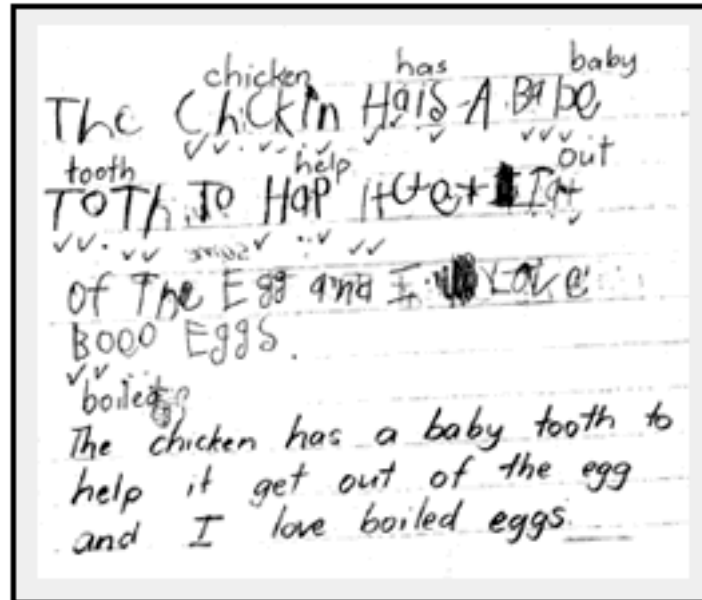 chicken has baby
The ChickIn HaiS A Babe
tooth help out
TOTh To Hap it Get Iat
of The Egg and I Love
BOOO EggS.
boiled
The chicken has a baby tooth to
help it get out of the egg
and I love boiled eggs